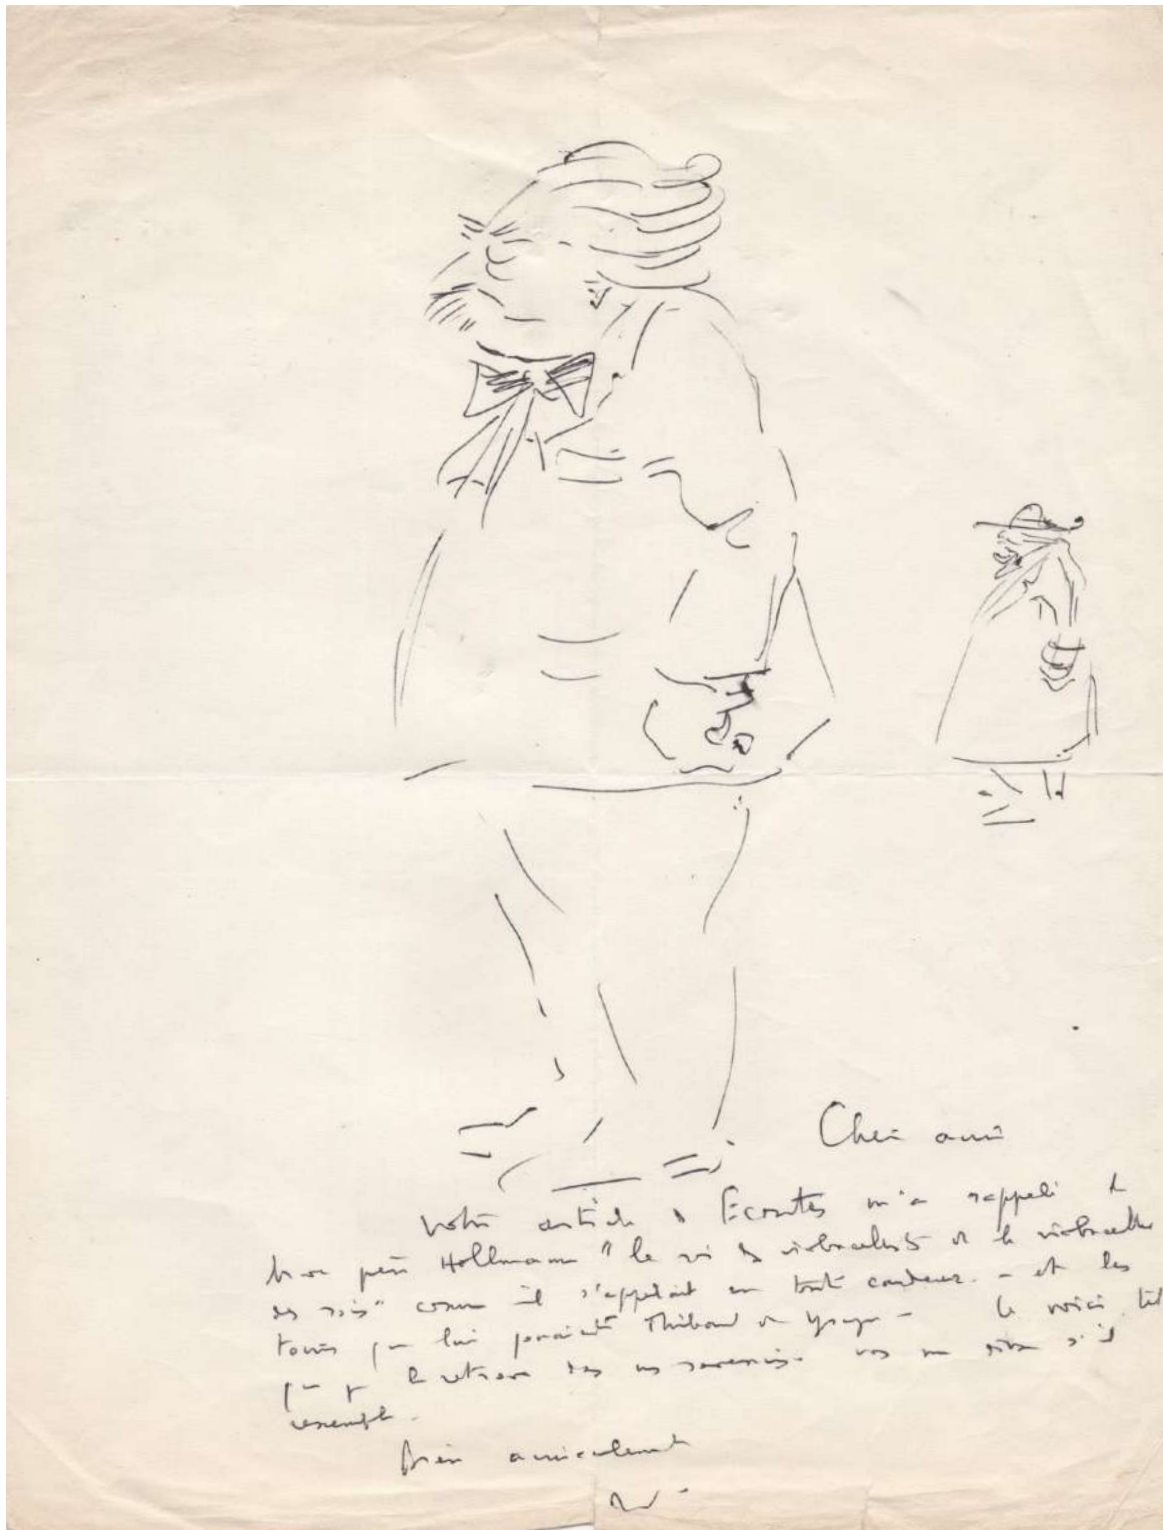 Cher ami
votre article d'Ecoutes m'a rappelé le
bon père Hollmann "le roi des violoncellistes et le violoncelliste
des rois" comme il s'appelait en toute candeur. - et les
tours que lui jouaient Thibaud et Ysaye - Le voici tel
que je le retrouve dans mes souvenirs. vous me direz s'il
ressemble.
Bien amicalement